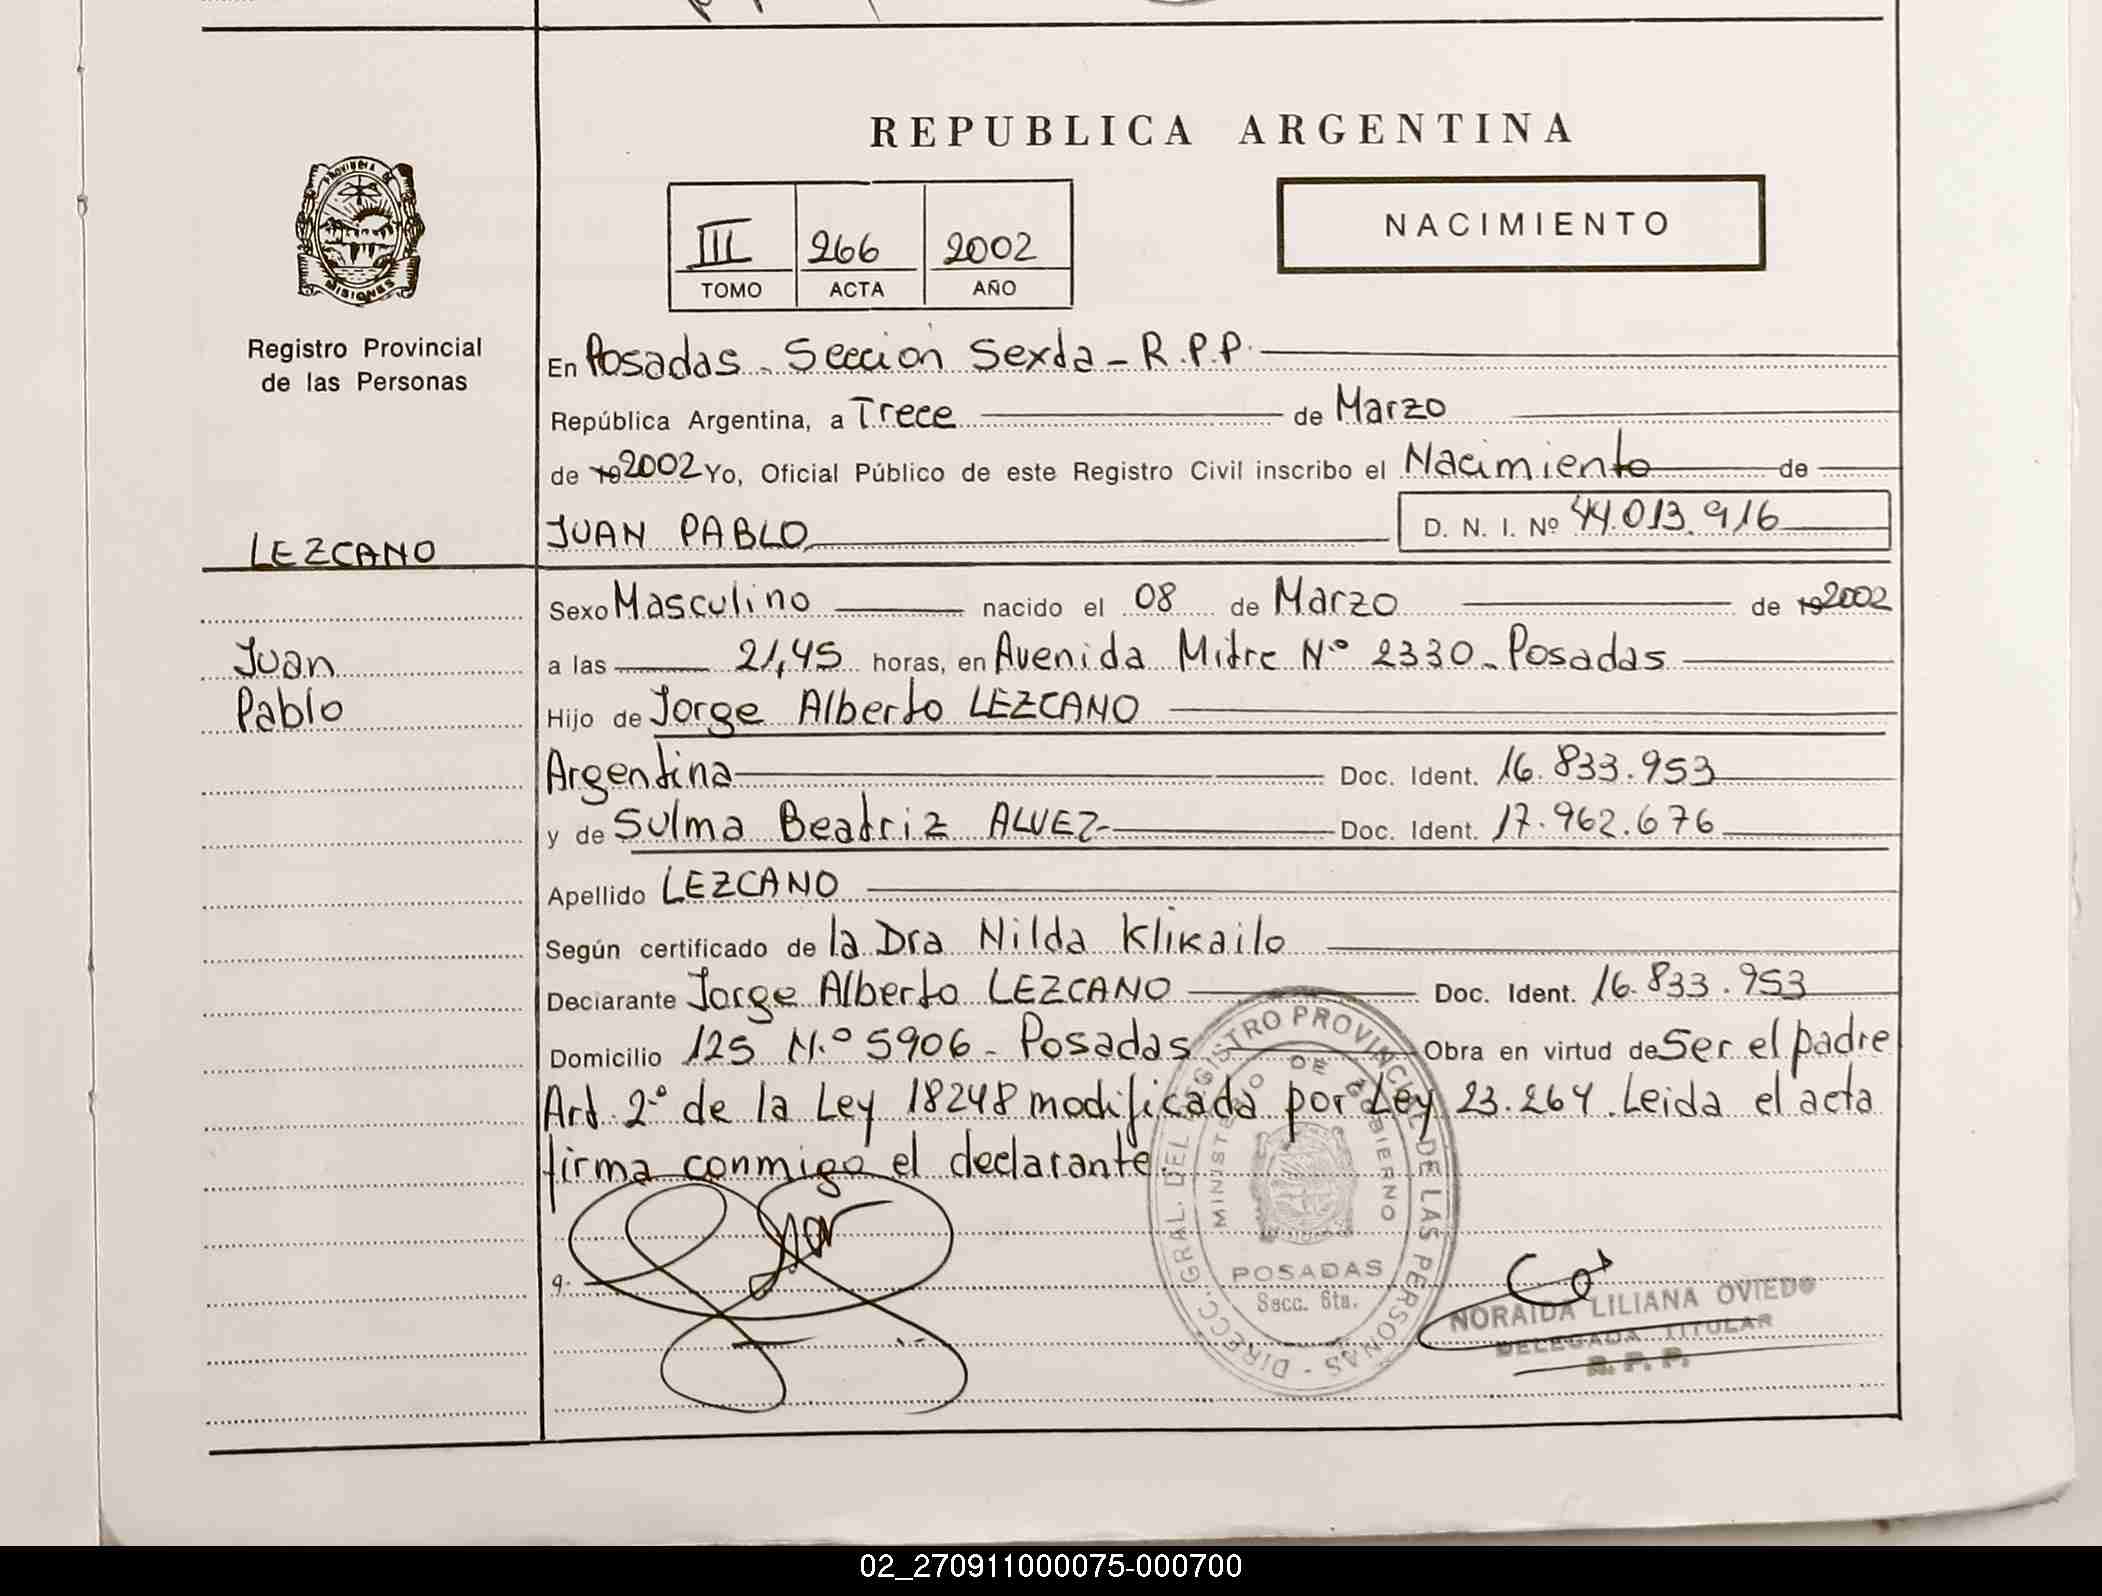 REPUBLICA ARGENTINA
PROVINCIA DE
MISIONES
Registro Provincial
de las Personas
III 266 2002
TOMO ACTA AÑO
NACIMIENTO
En Posadas - Sección Sexta - R.P.P.
República Argentina, a Trece de Marzo
de 19 2002 Yo, Oficial Público de este Registro Civil inscribo el Nacimiento de
LEZCANO
JUAN PABLO D. N. I. Nº 44.013.916
Sexo Masculino nacido el 08 de Marzo de 19 2002
Juan
Pablo
a las 21,45 horas, en Avenida Mitre N.º 2330 - Posadas
Hijo de Jorge Alberto LEZCANO
Argentina Doc. Ident. 16.833.953
y de Sulma Beatriz ALVEZ- Doc. Ident. 17.962.676
Apellido LEZCANO
Según certificado de la Dra Nilda Klikailo
Declarante Jorge Alberto LEZCANO Doc. Ident. 16.833.953
Domicilio 125 N.º 5906 - Posadas Obra en virtud de Ser el padre
Art. 2º de la Ley 18248 modificada por Ley 23.264. Leida el acta
firma conmigo el declarante.
DIRECC. GRAL. DEL REGISTRO PROVINCIAL DE LAS PERSONAS -
MINISTERIO DE GOBIERNO
POSADAS
Secc. 6ta.
NORAIDA LILIANA OVIEDO
DELEGADA TITULAR
R. P. P.
02_270911000075-000700